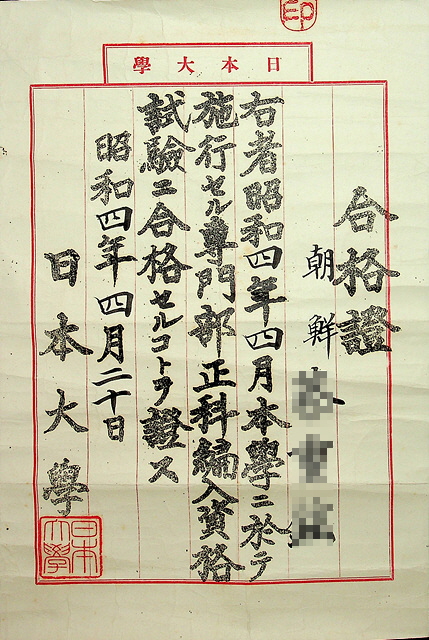 印
日本大學
合格證
朝鮮
右者昭和四年四月本學ニ於テ
施行セル專門部正科編入資格
試驗ニ合格セルコトヲ證ス
昭和四年四月二十日
日本大學
日本大學